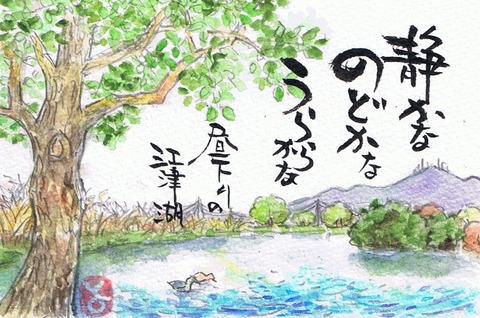 静かな
のどかな
うららかな
昼下りの
江津湖